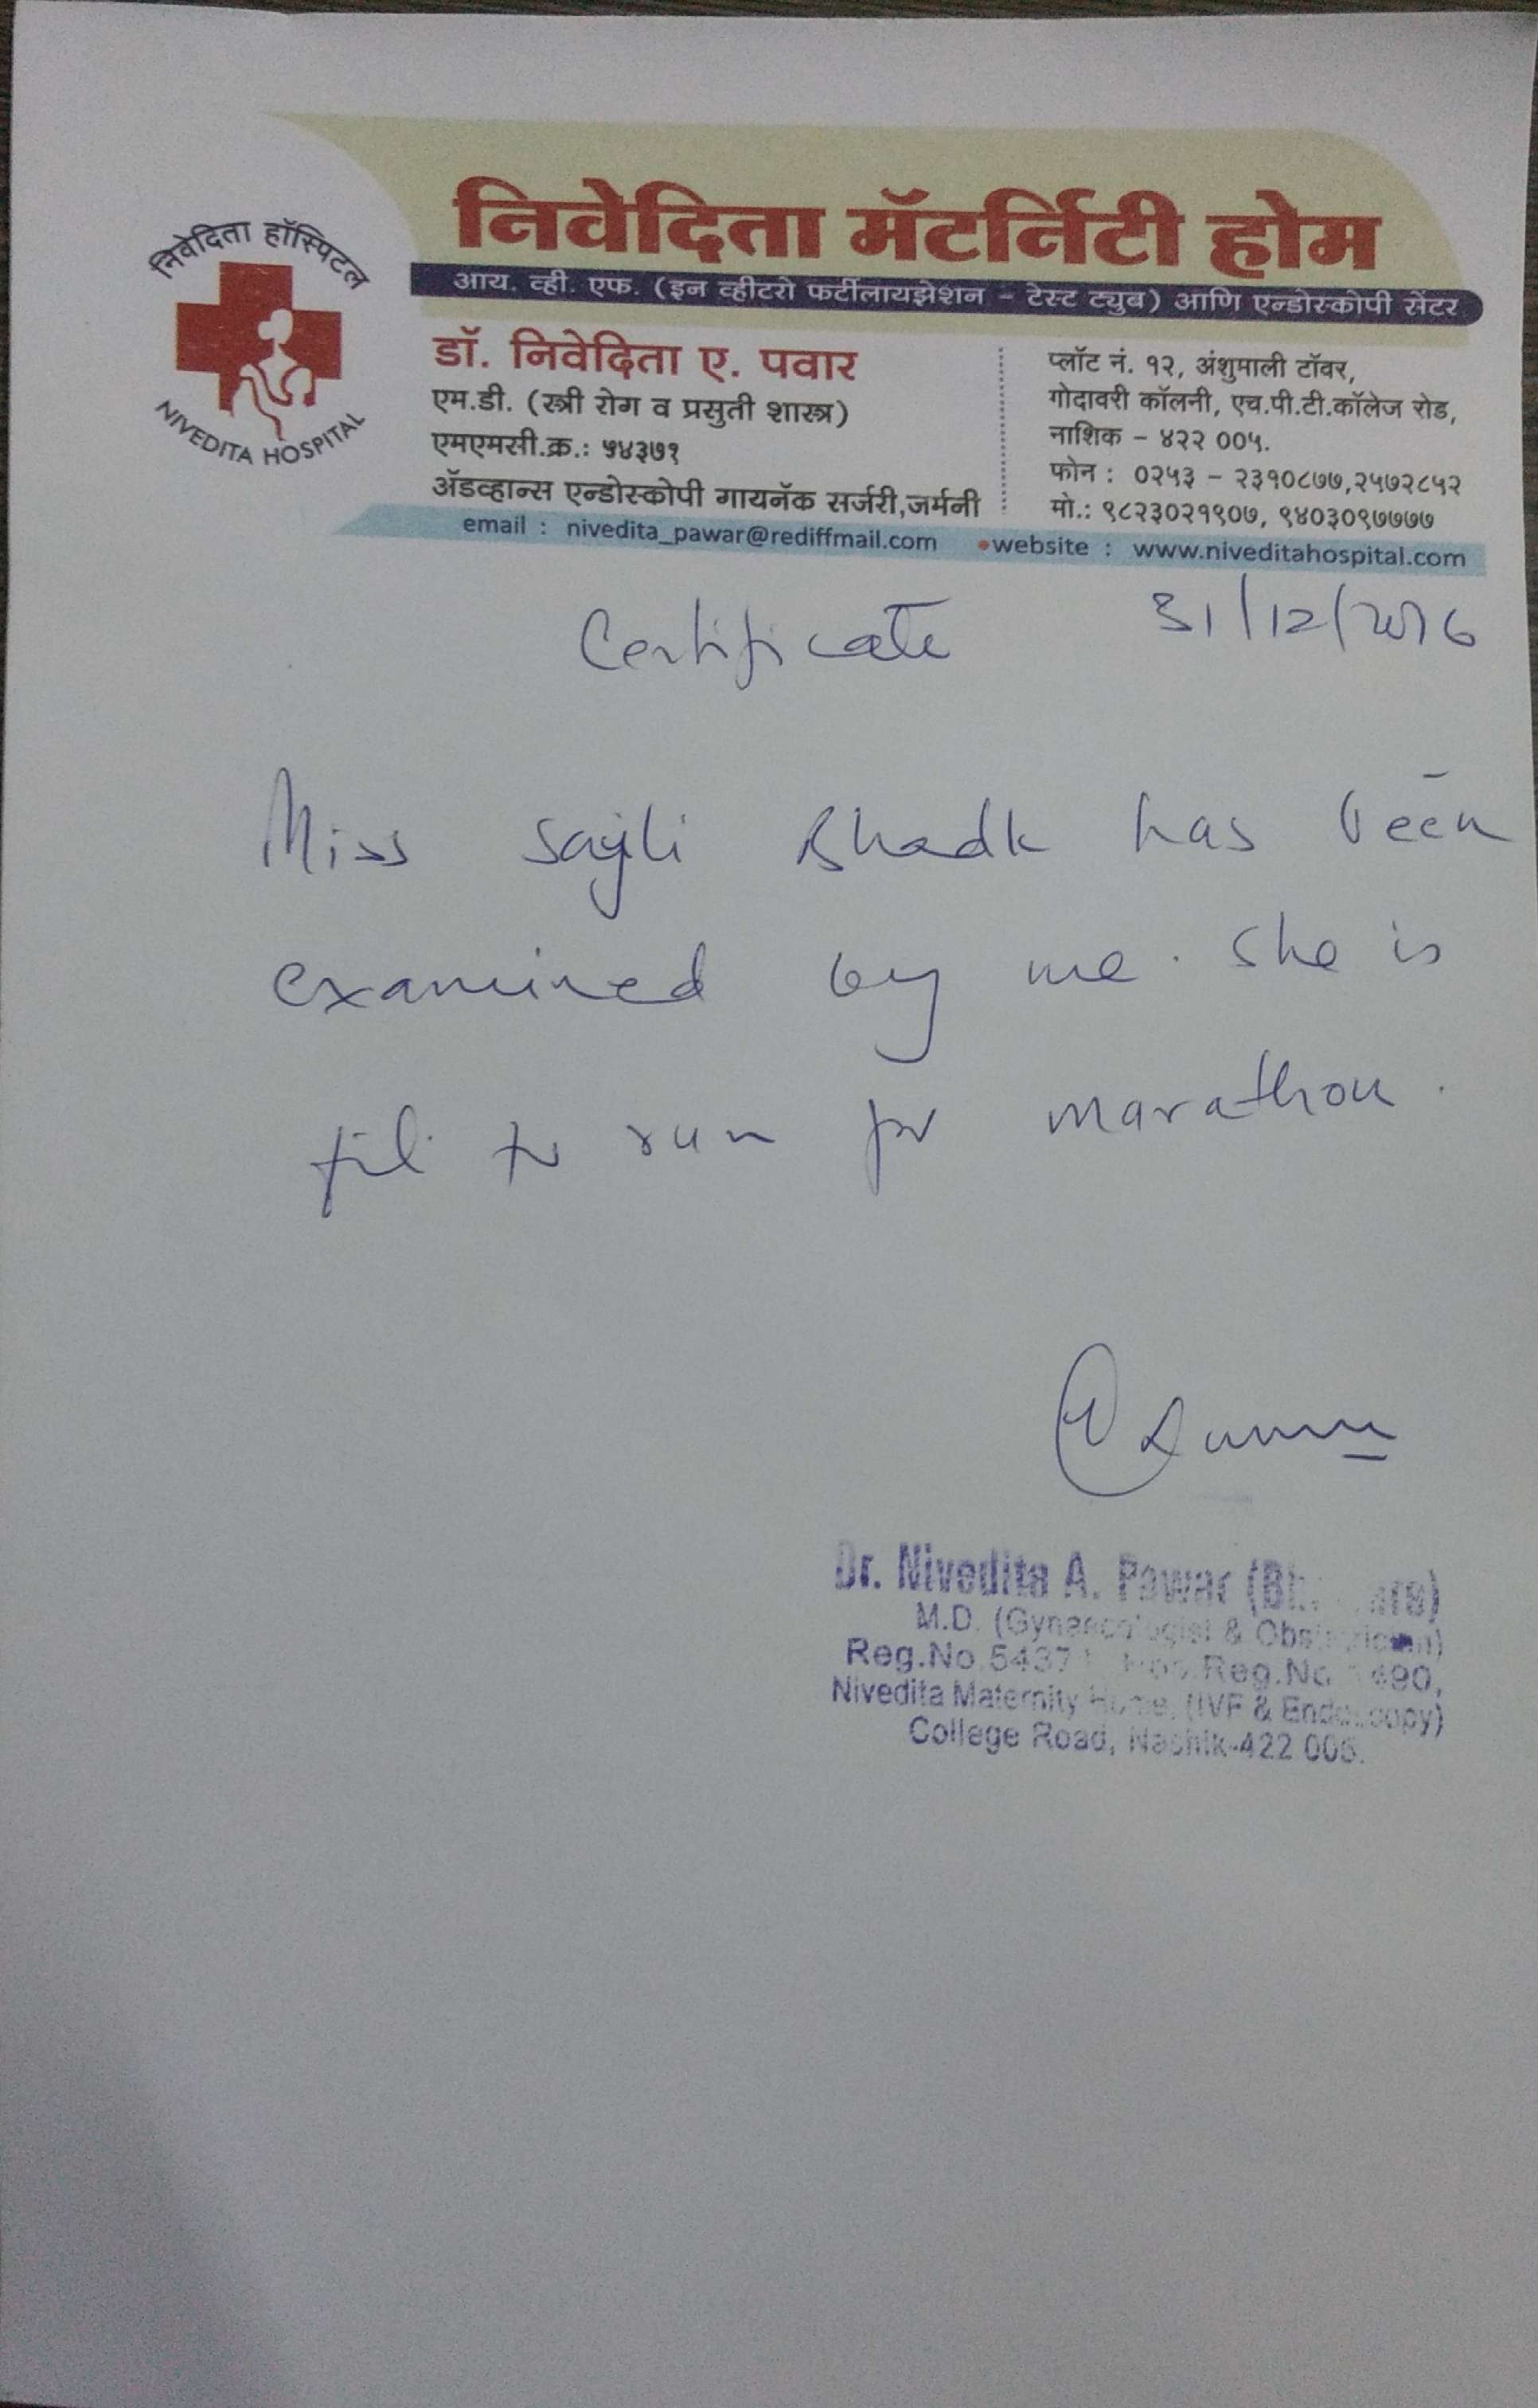 निवेदिता हॉस्पिटल
NIVEDITA HOSPITAL
निवेदिता मॅटर्निटी होम
आय. व्ही. एफ. (इन व्हीटरो फर्टीलायझेशन - टेस्ट ट्युब) आणि एन्डोस्कोपी सेंटर
डॉ. निवेदिता ए. पवार
एम.डी. (स्त्री रोग व प्रसुती शास्त्र)
एमएमसी.क्र.: ५४३७१
ॲडव्हान्स एन्डोस्कोपी गायनॅक सर्जरी,जर्मनी
प्लॉट नं. १२, अंशुमाली टॉवर,
गोदावरी कॉलनी, एच.पी.टी.कॉलेज रोड,
नाशिक - ४२२ ००५.
फोन : ०२५३ - २३१०८७७,२५७२८५२
मो.: ९८२३०२१९०७, ९४०३०९७७७७
email : nivedita_pawar@rediffmail.com •website : www.niveditahospital.com
Certificate 31/12/2016
Miss has been
examined by me. She is
fit to run for marathon.
Dr. Nivedita A. Pawar
M.D. (Gynaecologist & Obstetrician)
Reg.No.54371 Reg.No 490,
Nivedita Maternity Home, (IVF & Endoscopy)
College Road, Nashik-422 005.